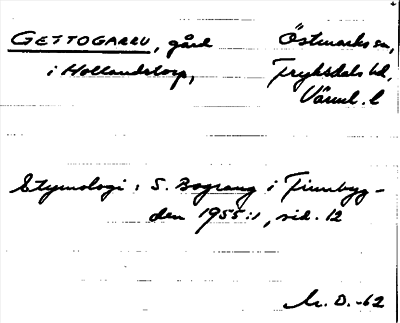 GETTOGARRU, gård Östmarks sn,
i Hollandstorp, Fryksdals hd,
Värml. l
Etymologi: S. Bograng i Finnbyg-
den 1955:1, sid. 12
M. D. -62